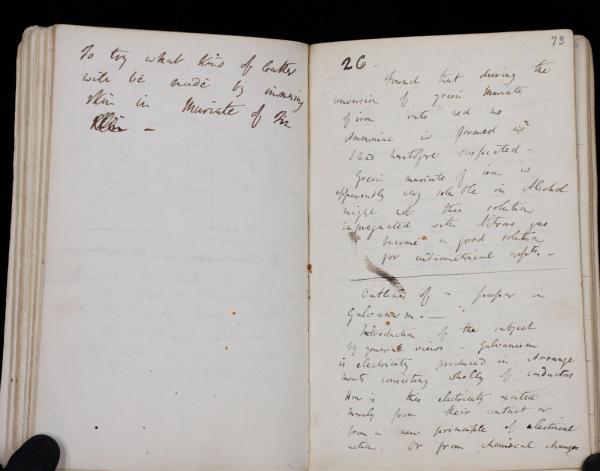 To try what kind of leather
will be made by immersing
skin in Muriate of Tin
73
26
Found that during the
conversion of green Muriate
of iron into red no
Ammonia is formed as
I had heretofore suspected -
Green muriate of iron is
apparently very soluble in Alcohol
might not this solution
impregnated with Nitrous gas
become a good solution
for eudiometrical expts. -
Outlines of a paper on
Galvanism. -
Introduction of the subject
by general views - Galvanism
is electricity produced in Arrange
ments consisting wholly of conductors
How is this electricity excited
merely from their contact or
from a new principle of electrical
action; Or from chemical changes